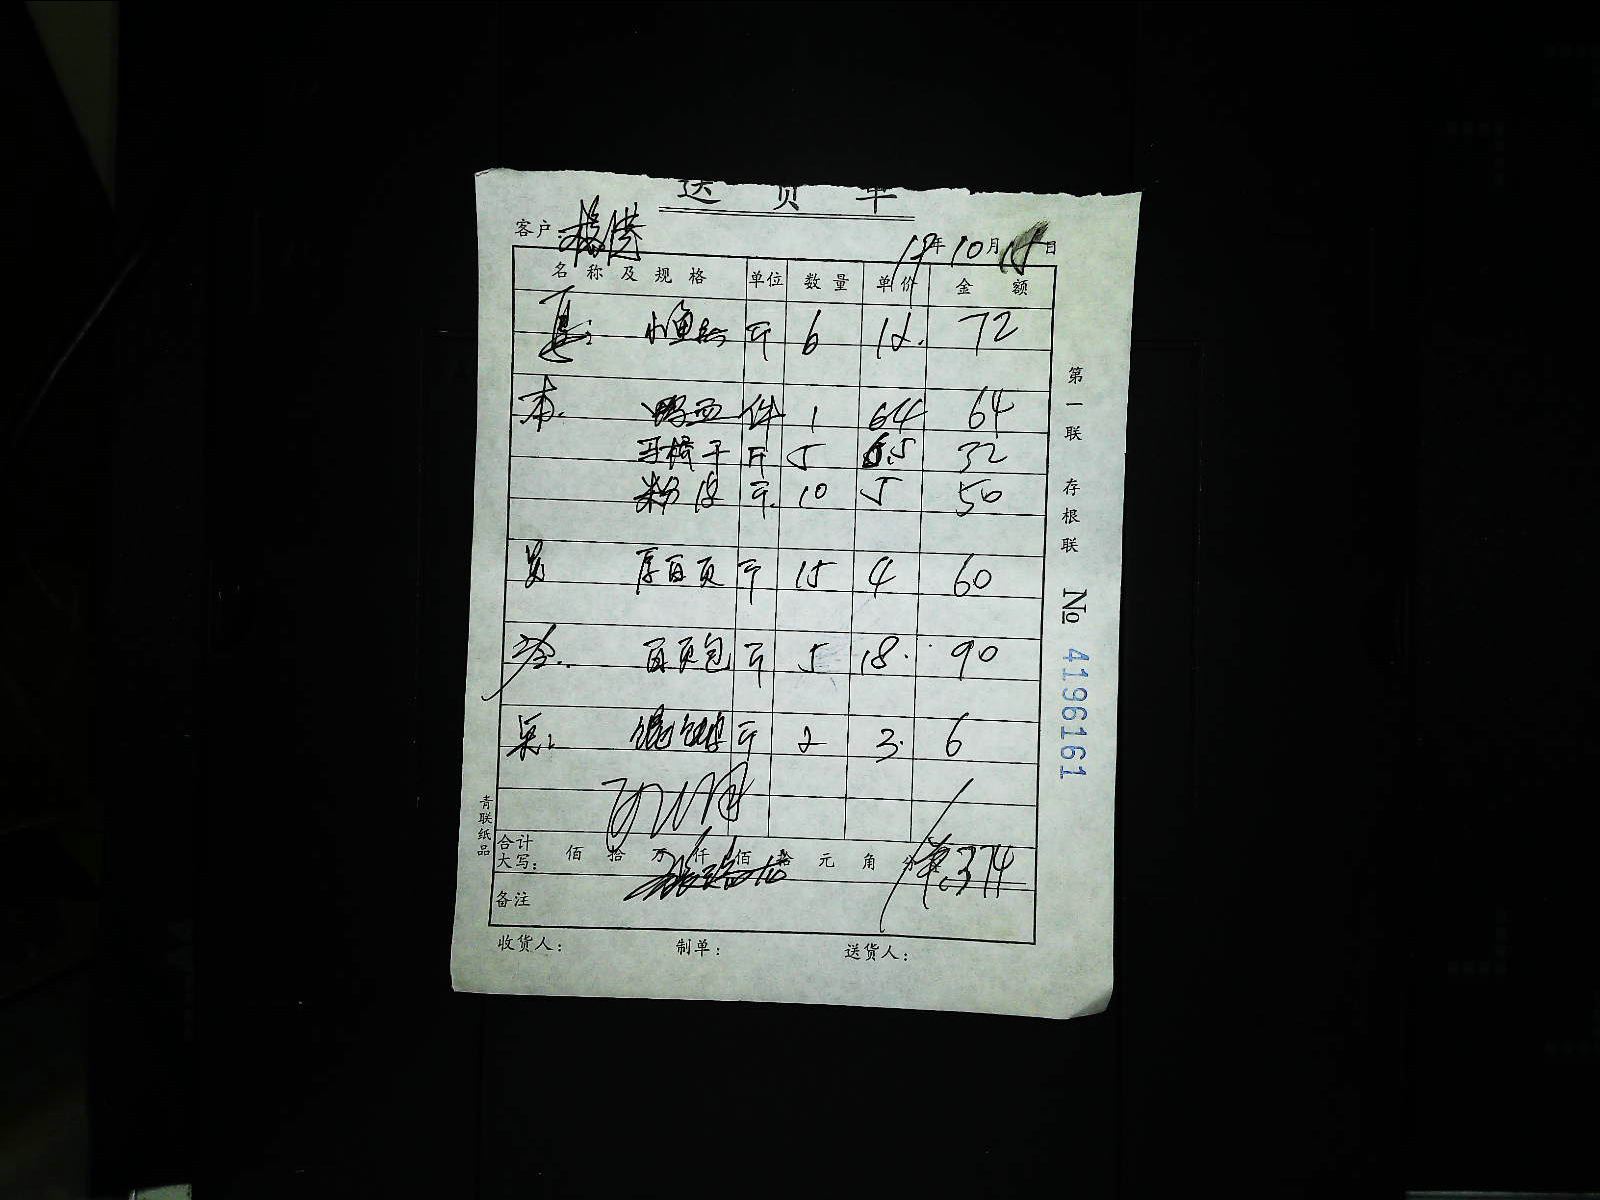 送货单
客户:
19年10月15日
名称及规格 单位 数量 单价 金额
小鱼 斤 6 12. 72
本. 鸭血 件 1 64 64
干 斤 5 6.5 32
粉皮 斤. 10 5 50
厚百页 斤 15 4 60
冷.. 百页包 斤 5 18. 90
斤 2 3. 6
合计大写: 佰 拾 万 仟 佰 拾 元 角 分 374
备注
收货人: 制单: 送货人:
第一联 存根联 № 4196161
青联纸品